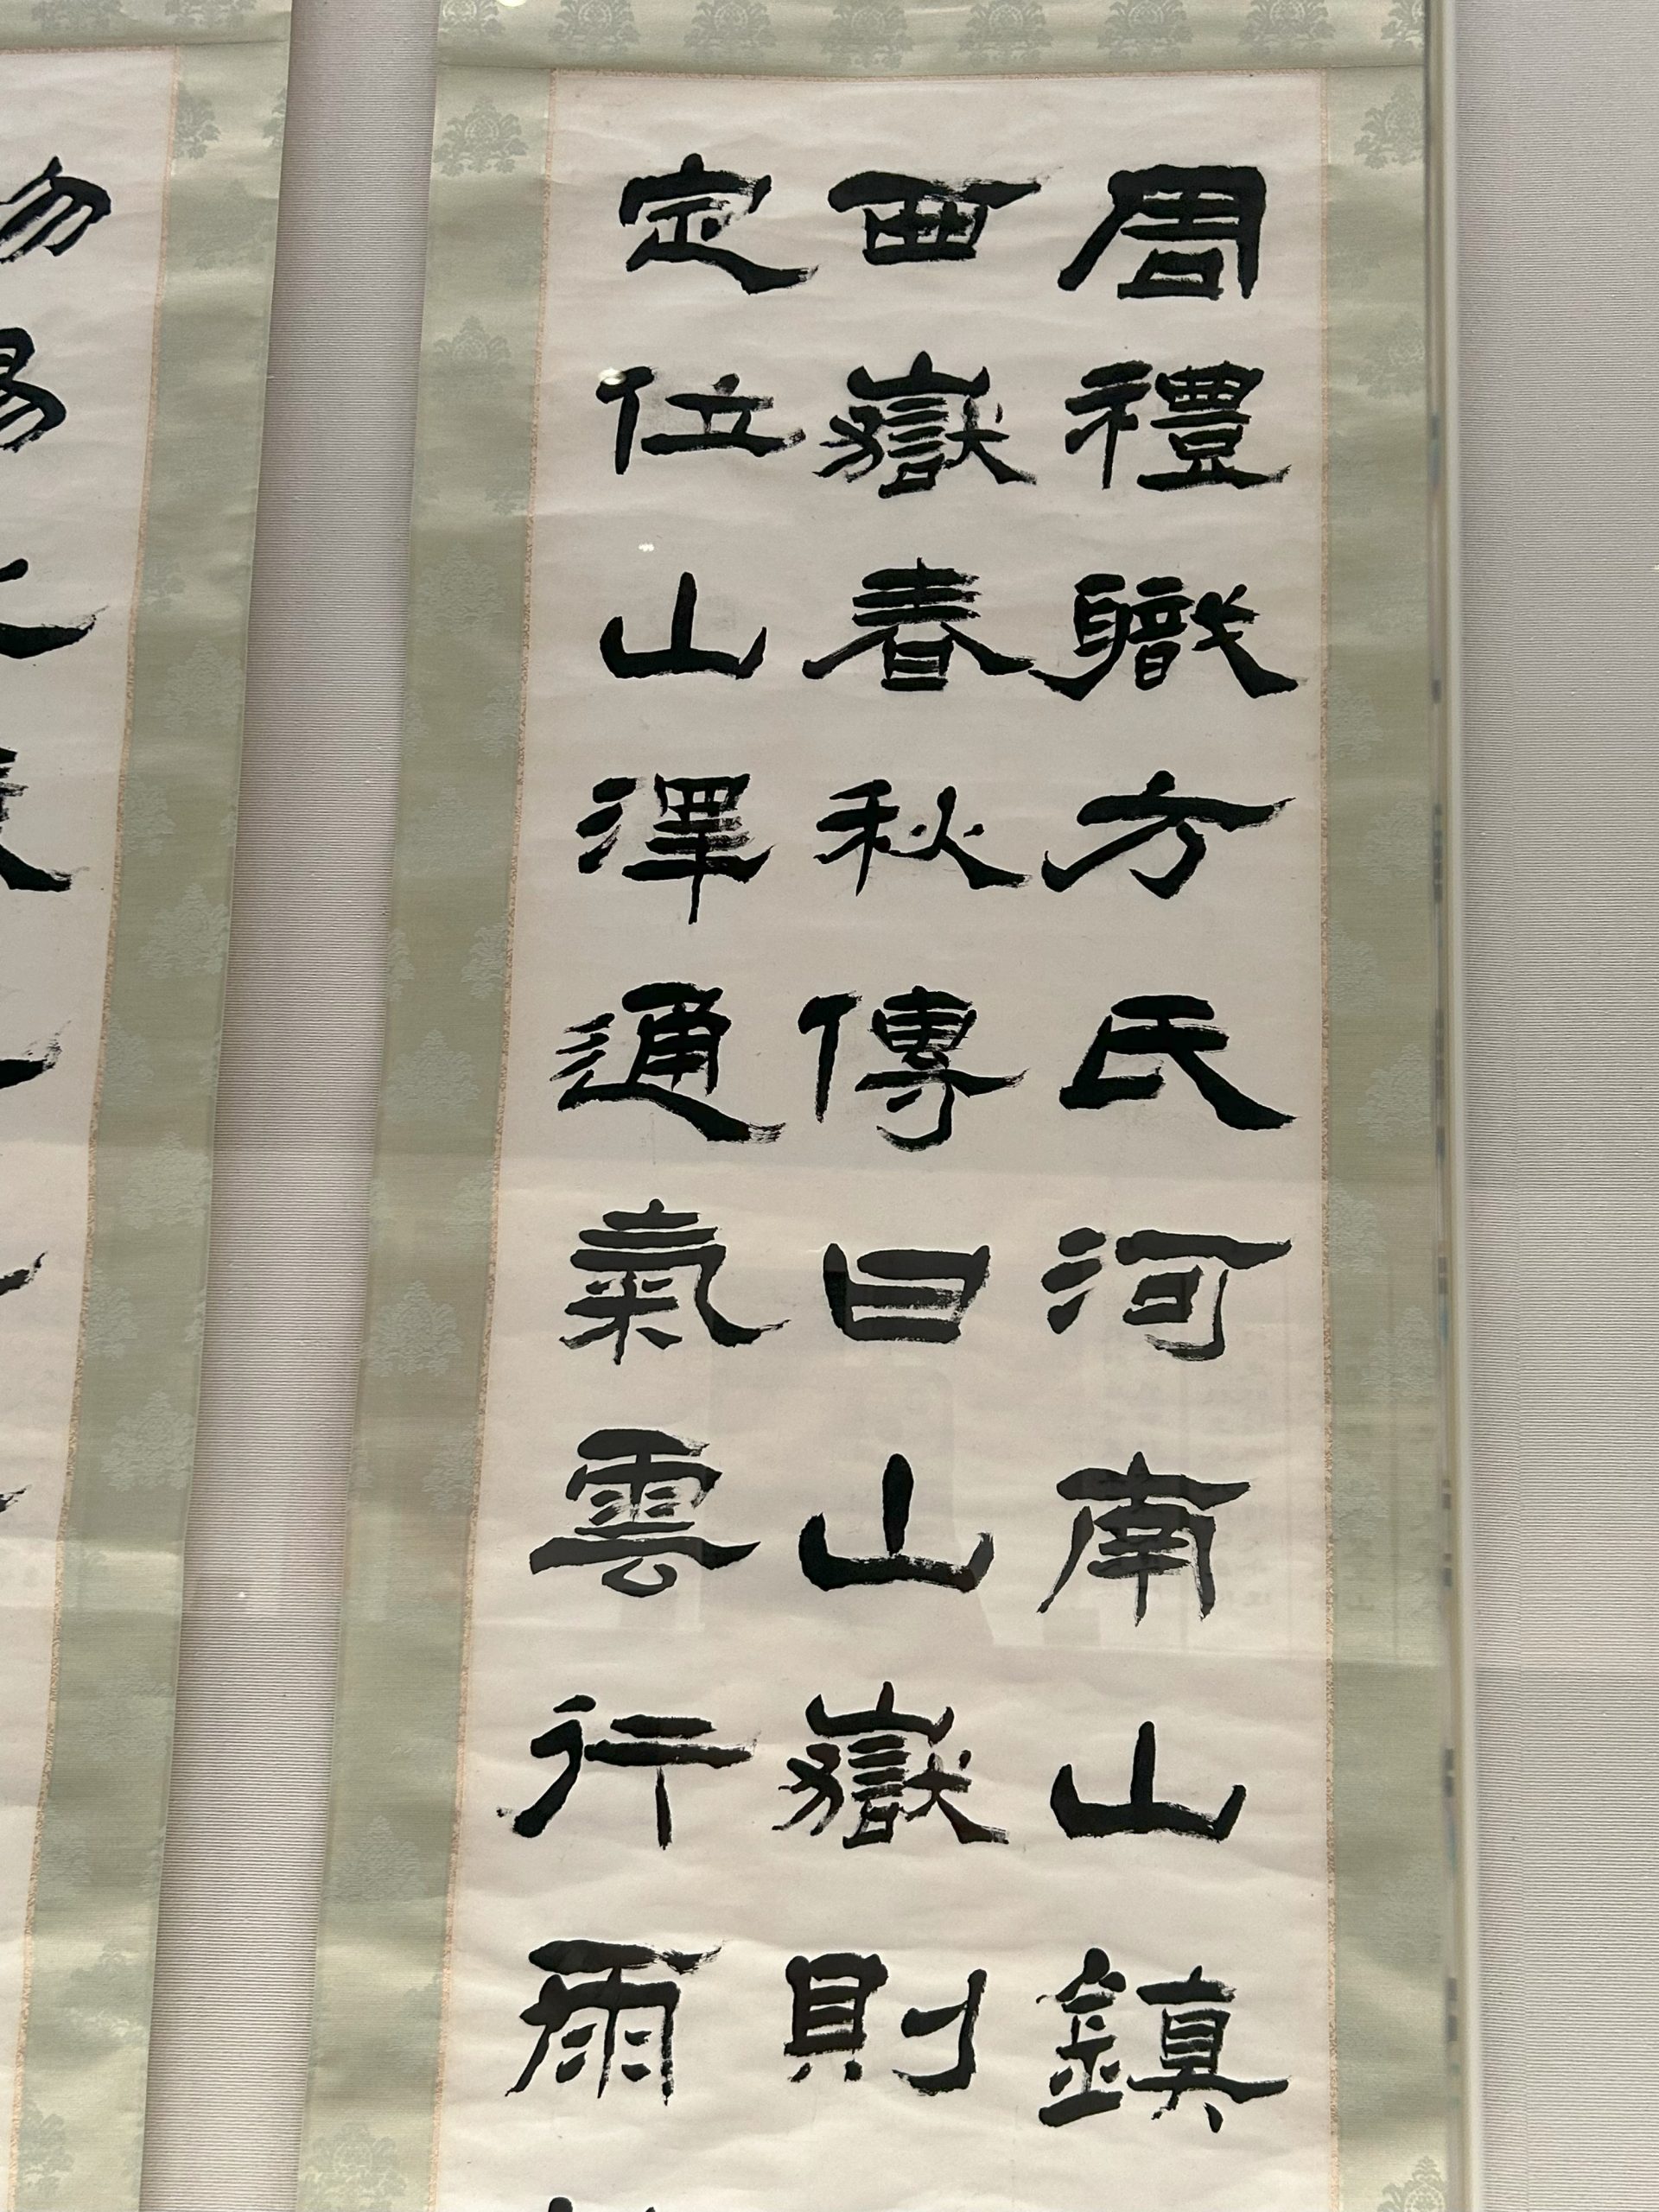 周禮職方氏河南山鎮
西嶽春秋傳曰山嶽則
定位山澤通氣雲行雨